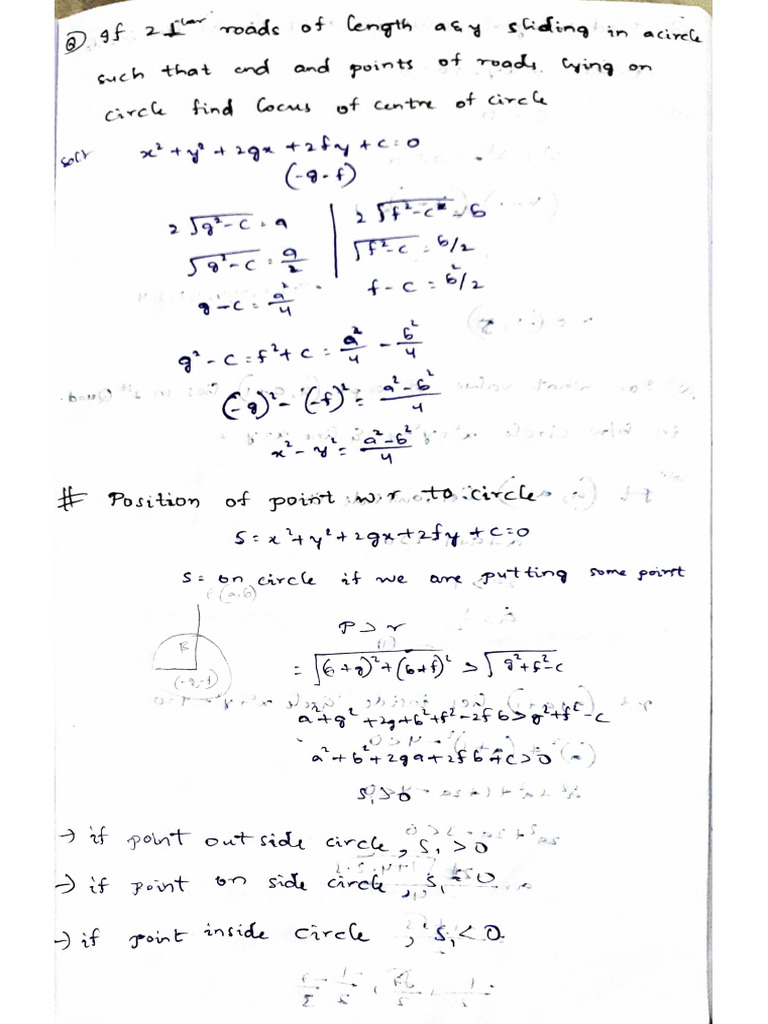 Q gf 2 ⊥lar roads of length a&y sliding in a circle
such that end and points of roads lying on
circle find locus of centre of circle
soln x²+y²+2gx+2fy+c=0
(-g-f)
2√g²-c = a | 2√f²-c = b
√g²-c = a/2 | √f²-c = b/2
g-c = a²/4 | f-c = b²/2
g²-c = f²+c = a²/4 - b²/4
(-g)² - (-f)² = a²-b²/4
x²-y² = a²-b²/4
# Position of point w r to circle
S = x²+y²+2gx+2fy+c=0
S = on circle if we are putting some point
P(a,b)
P > r
R
(-g,-f)
= √(6+g)²+(b+f)² > √g²+f²-c
a²+g²+2g+b²+f²-2fb > g²+f²-c
a²+b²+2ga+2fb+c>0
S₁>0
→ if point outside circle, S₁ >0
→ if point on side circle, S₁ = 0
→ if point inside circle, S₁< 0